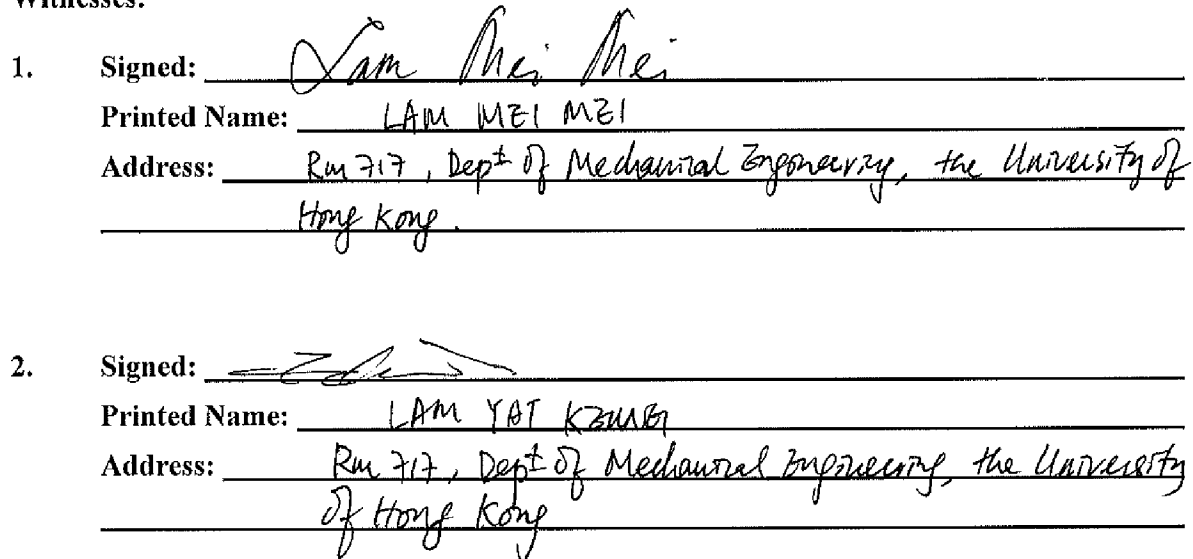 Witnesses:
1. Signed: Lam Mei Mei
Printed Name: LAM MEI MEI
Address: Rm 717, Dept of Mechanical Engineering, the University of
Hong Kong.
2. Signed:
Printed Name: LAM YAT
Address: Rm 717, Dept of Mechanical Engineering, the University
of Hong Kong